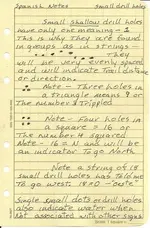 Spanish Notes Small drill holes
Small shallow drill holes
have only one meaning - 2
This is why they are found
in groups as in strings -
They
will be very evenly spaced
and will indicate Trail distance
or direction.
Note - Three holes in
a Triangle means 9 or
The number 3 Trippled
Note - Four holes in
a square = 16 or
The number 4 squared
Note - 16 = N and will be
an indicator To go North.
Note a string of 18
small drill holes has Told me
To go west. 18=O - "oeste"
Single small dots or drill holes
also indicate water when
Not associated with other signs